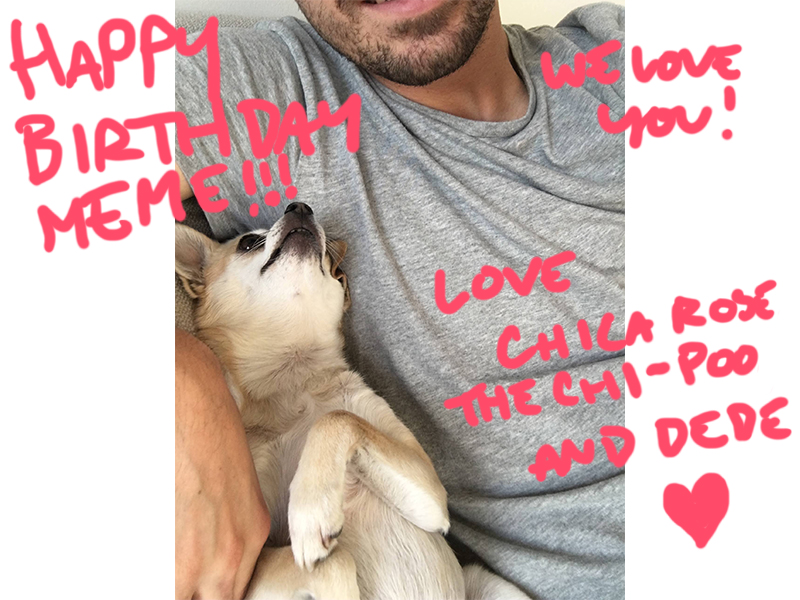 HAPPY
BIRTHDAY
MEME!!!
WE LOVE
YOU!
LOVE
CHICA ROSE
THE CHI-POO
AND DEDE